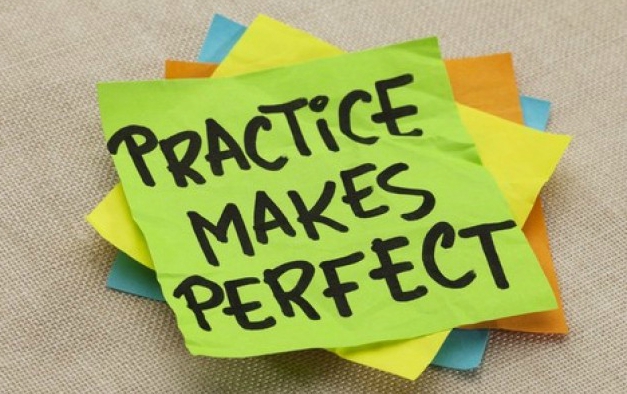 PRACTiCE
MAKES
PERFECT